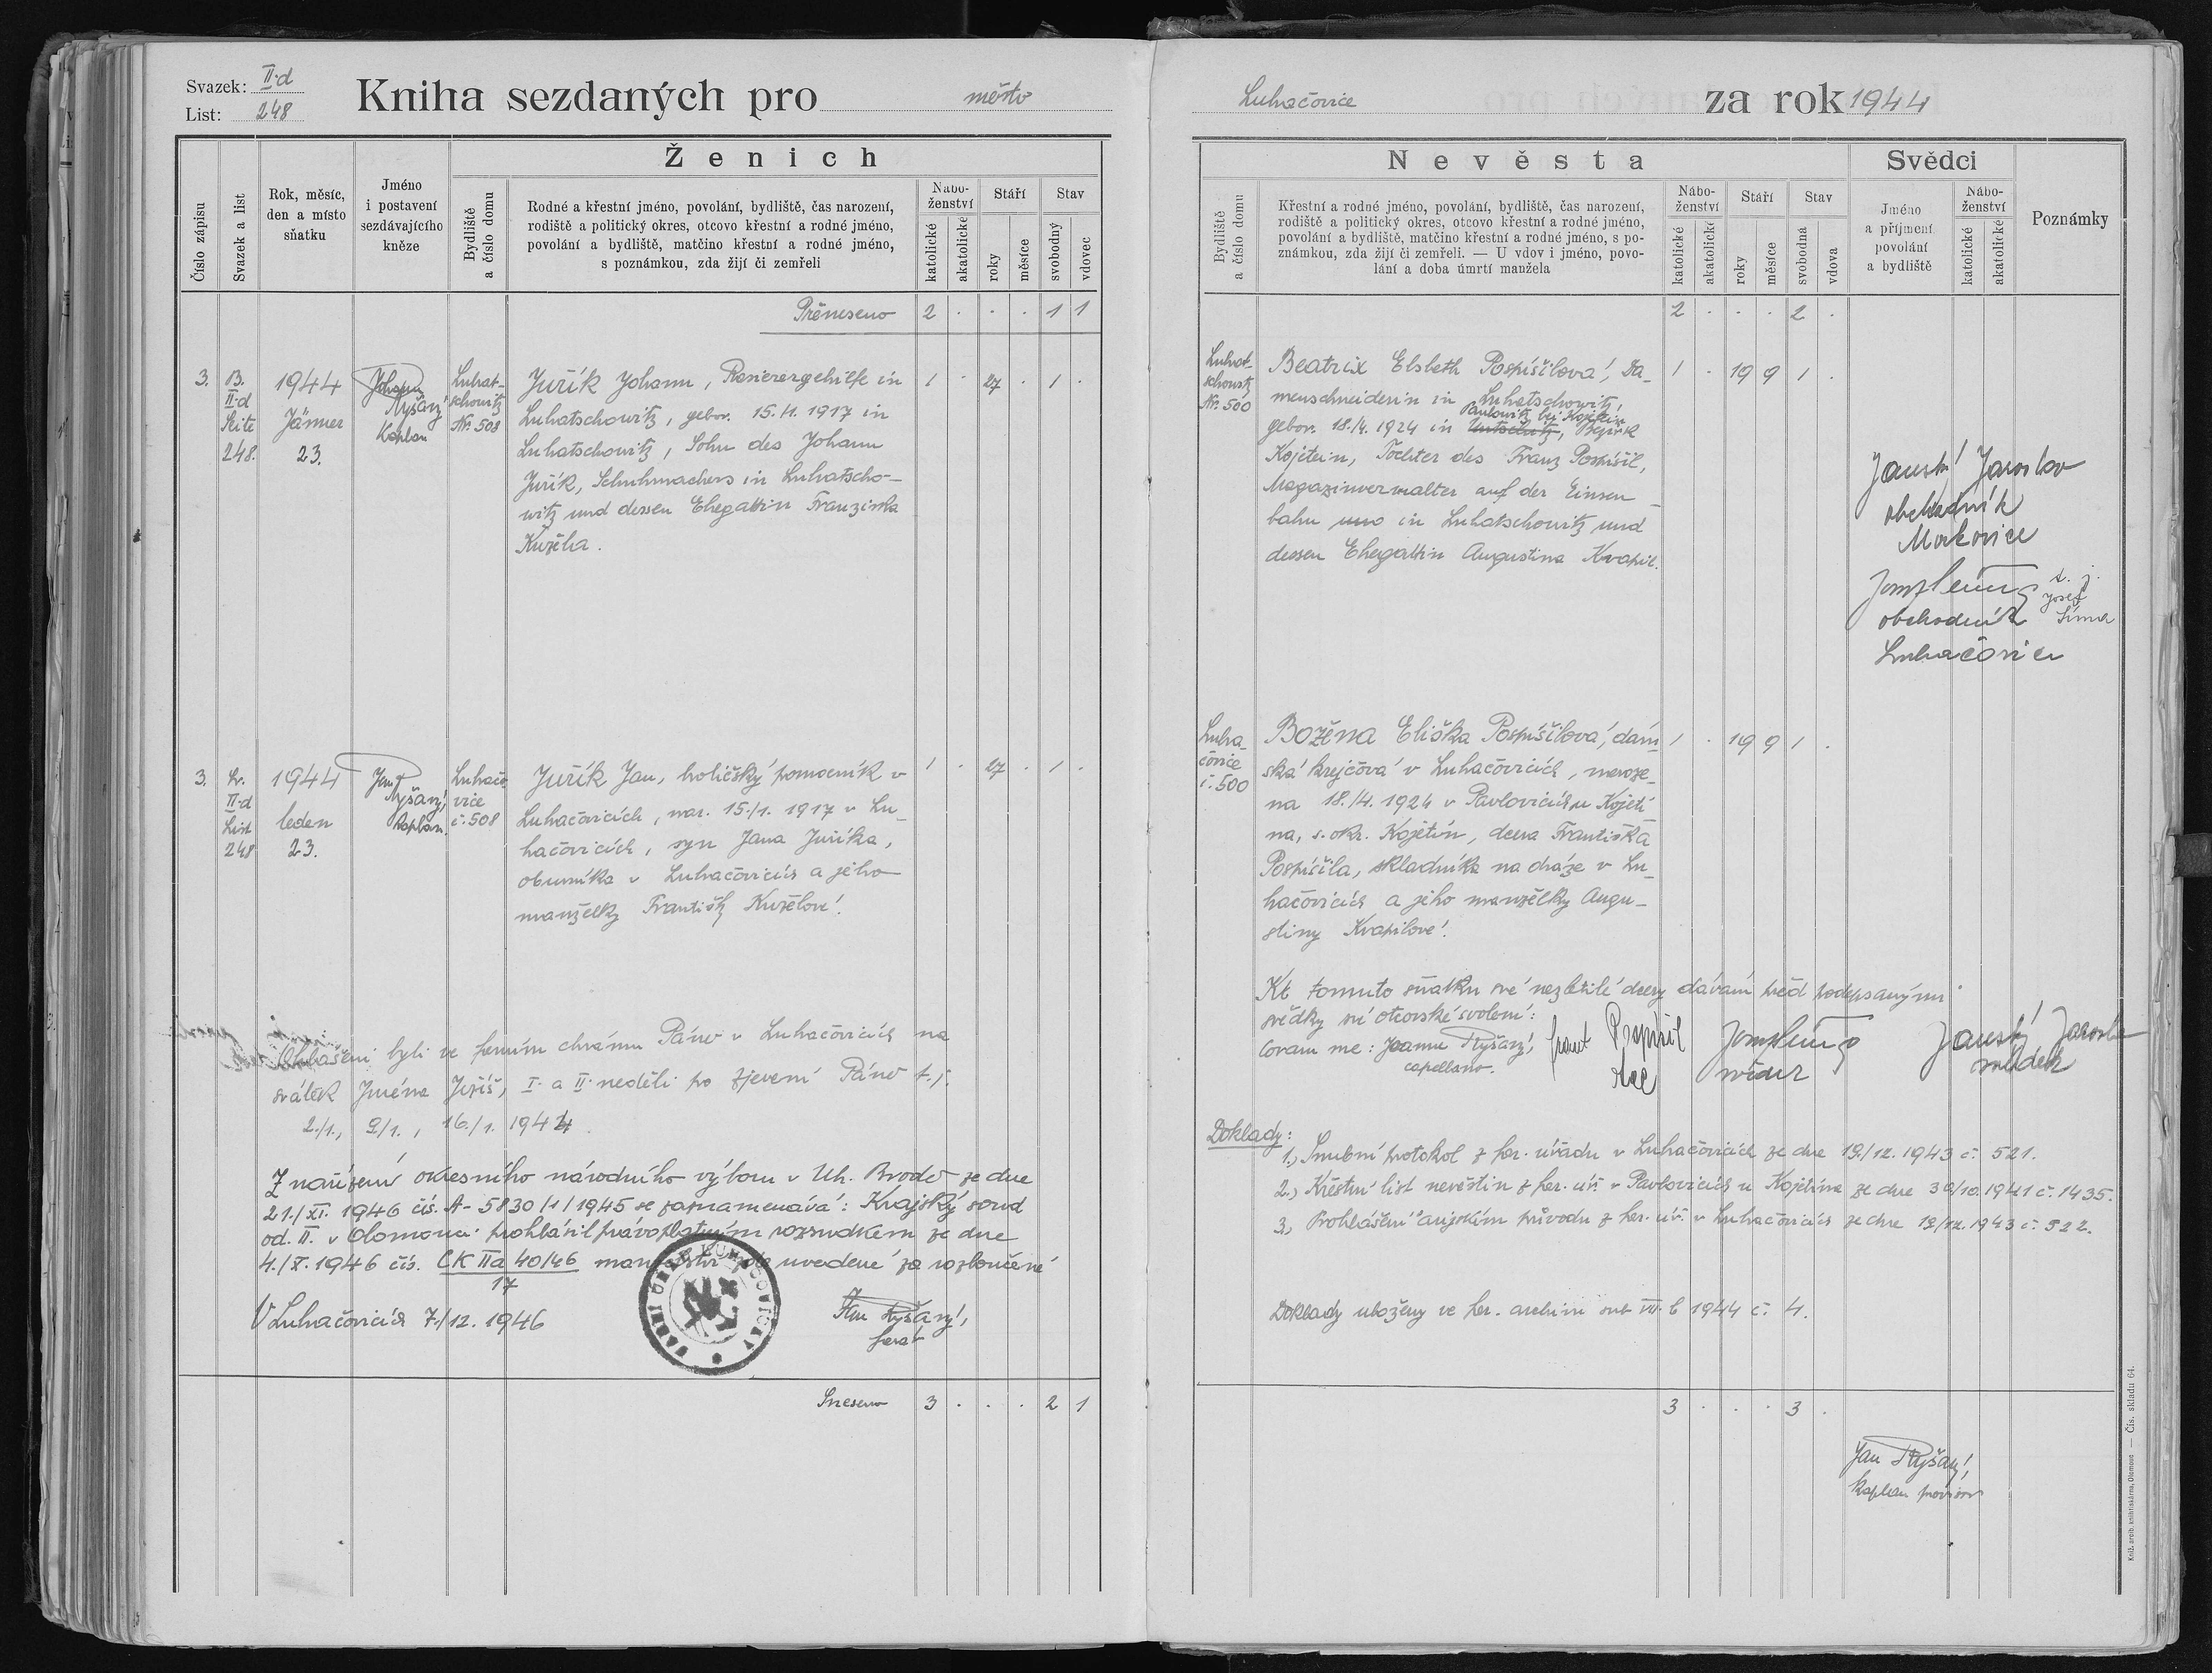 Svazek: II·d
List: 248
Kniha sezdaných pro město
Číslo zápisu
Svazek a list
Rok, měsíc,
den a místo
sňatku
Jméno
i postavení
sezdávajícího
kněze
Ženich
Bydliště
a číslo domu
Rodné a křestní jméno, povolání, bydliště, čas narození,
rodiště a politický okres, otcovo křestní a rodné jméno,
povolání a bydliště, matčino křestní a rodné jméno,
s poznámkou, zda žijí či zemřeli
Nábo-
ženství
katolické
akatolické
Stáří
roky
měsíce
Stav
svobodný
vdovec
Přeneseno 2 . . . 1 1
3.
B.
II·d
Seite
248.
1944
Jänner
23.
Johann
Ryšavý
Kaplan
Luhat-
schowitz
Nr. 508
Juřík Johann, Rasierergehilfe in
Luhatschowitz, gebor. 15./1. 1917 in
Luhatschowitz, Sohn des Johann
Juřík, Schuhmachers in Luhatscho-
witz und dessen Ehegattin Franziska
Kužela.
1 . 27 . 1 .
3.
Sv.
II·d
List
248
1944
leden
23.
Jan
Ryšavý,
kaplan.
Luhačo-
vice
č. 508
Juřík Jan, holičský pomocník v
Luhačovicích, nar. 15./1. 1917 v Lu-
hačovicích, syn Jana Juříka,
obuvníka v Luhačovicích a jeho
manželky Františky Kuželové.
1 . 27 . 1 .
Ohlášeni byli ve farním chrámu Páně v Luhačovicích na
svátek Jména Ježíš, I. a II. neděli po Zjevení Páně t.j.
2./1., 9/1., 16./1. 1944.
Z nařízení okresního národního výboru v Uh. Brodě ze dne
21./XI. 1946 čís. A-5830/1/1945 se zaznamenává: Krajský soud
od. II. v Olomouci prohlásil právoplatným rozsudkem ze dne
4./X. 1946 čís. CK IIa 40/46 manželství zde uvedené za rozloučené
17
V Luhačovicích 7./12. 1946
Jan Ryšavý,
farář
Sneseno 3 . . . 2 1
Luhačovice za rok 1944
Nevěsta
Bydliště
a číslo domu
Křestní a rodné jméno, povolání, bydliště, čas narození,
rodiště a politický okres, otcovo křestní a rodné jméno,
povolání a bydliště, matčino křestní a rodné jméno, s po-
známkou, zda žijí či zemřeli. — U vdov i jméno, povo-
lání a doba úmrtí manžela
Nábo-
ženství
katolické
akatolické
Stáří
roky
měsíce
Stav
svobodná
vdova
Svědci
Jméno
a příjmení
povolání
a bydliště
Nábo-
ženství
katolické
akatolické
Poznámky
2 . . . 2 .
Luhat-
schowitz
Nr. 500
Beatrix Elsbeth Pospíšilová, Da-
menschneiderin in Luhatschowitz,
Pawlowitz bei Kojetein
gebor. 18./4. 1924 in Bezirk
Kojetein, Tochter des Franz Pospíšil,
Magazinverwalter auf der Einsen-
bahn in Luhatschowitz und
dessen Ehegattin Augustina Kvapil.
1 . 19 9 1 .
Jaroslav
obchodník
Morkovice
t. j.
Josef
Šíma
obchodník
Luhačovice
Luha-
čovice
č. 500
Božena Eliška Pospíšilová, dám-
ská krejčová v Luhačovicích, naroze-
na 18./4. 1924 v Pavlovicích u Kojetí-
na, s. okr. Kojetín, dcera Františka
Pospíšila, skladníka na dráze v Lu-
hačovicích a jeho manželky Augu-
stiny Kvapilové.
1 . 19 9 1 .
K tomuto sňatku své nezletilé dcery dávám před podepsanými
svědky své otcovské svolení:
Coram me: Joanne Ryšavý,
capellano.
Frant Pospíšil
otec
svědek
Jaroslav
svědek
Doklady:
1., Snubní protokol z far. úřadu v Luhačovicích ze dne 19./12. 1943 č. 521.
2.) Křestní list nevěstin z far. úř. v Pavlovicích u Kojetína ze dne 30/10. 1941 č. 1435.
3., Prohlášení o arijském původu z far. úř. v Luhačovicích ze dne 19/12. 1943 č. 522.
Doklady uloženy ve far. archivu sub VII. b 1944 č. 4.
3 . . . 3 .
Jan Ryšavý,
kaplan provisor
Kniž. arcib. knihtiskárna, Olomouc — Čís. skladu 64.